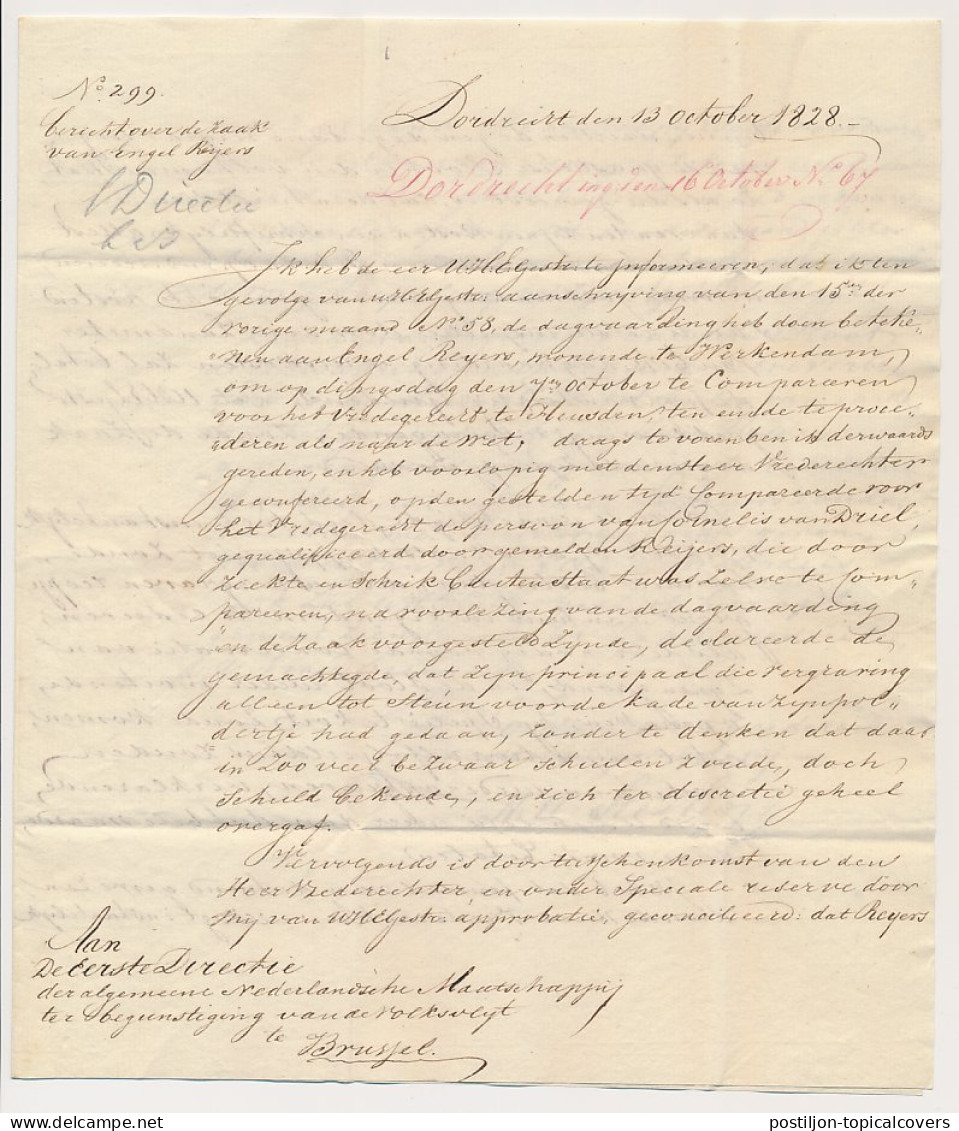 No. 299.
Dordrecht den 13 October 1828.
bericht over de zaak
van Engel Reijers
Dordrecht den 16 October No 67
Directie
Ik heb de eer UHEdGestr: te informeeren, dat ik ten
gevolge van UHEdGestr: aanschrijving van den 15den der
vorige maand No. 58, de dagvaarding heb doen beteke-
nen aan Engel Reyers, wonende te Werkendam,
om op dingsdag den 7den October te Compareeren
voor het Vredegerecht te Heusden, ten einde te proce-
deren als naar de Wet, daags te voren ben ik derwaards
gereden, en heb voorlopig met den Heer Vrederechter
geconfereerd, op den gestelden tijd Compareerde voor
het Vredegerecht de persoon van Cornelis van Driel,
gequalificeerd door gemelden Reijers, die door
Ziekte en Schrik buiten Staat was Zelve te Com-
pareeren, na voorlezing van de dagvaarding
en de Zaak voorgesteld Zynde, declareerde de
gemachtigde, dat Zyn principaal die vergraving
alleen tot Steun voor de kade van Zyn pol-
dertje had gedaan, Zonder te denken dat daar
in Zoo veel bezwaar Schuilen Zoude, doch
Schuld bekende, en Zich ter discretie geheel
overgaf.
Vervolgends is door tusschenkomst van den
Heer Vrederechter en onder Speciale reserve door
mij van UHEdGestr: approbatie, geconcilieerd: dat Reyers
Aan
De Eerste Directie
der algemeene Nederlandsche Maatschappij
ter begunstiging van de volksvlyt
te
Brussel.
postiljon-topicalcovers